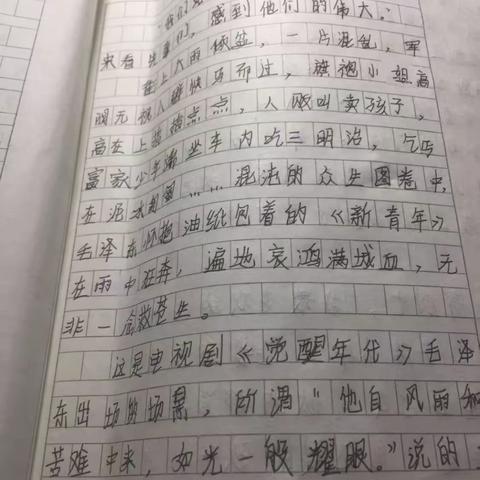 我们
来看 先辈们，感到他们的伟大。：
街上大雨倾盆，一片混乱，军
阀无视人群快马而过，旗袍小姐高
高在上指指点点，人贩叫卖孩子，
富家少年端坐车内吃三明治，乞丐
在泥水……混沌的众生图卷中，
毛泽东怀抱油纸包着的《新青年》
在雨中狂奔，遍地哀鸿满城血，无
非一念救苍生。
这是电视剧《觉醒年代》毛泽
东出场的场景，所谓“他自风雨和
苦难中来，如光一般耀眼。”说的